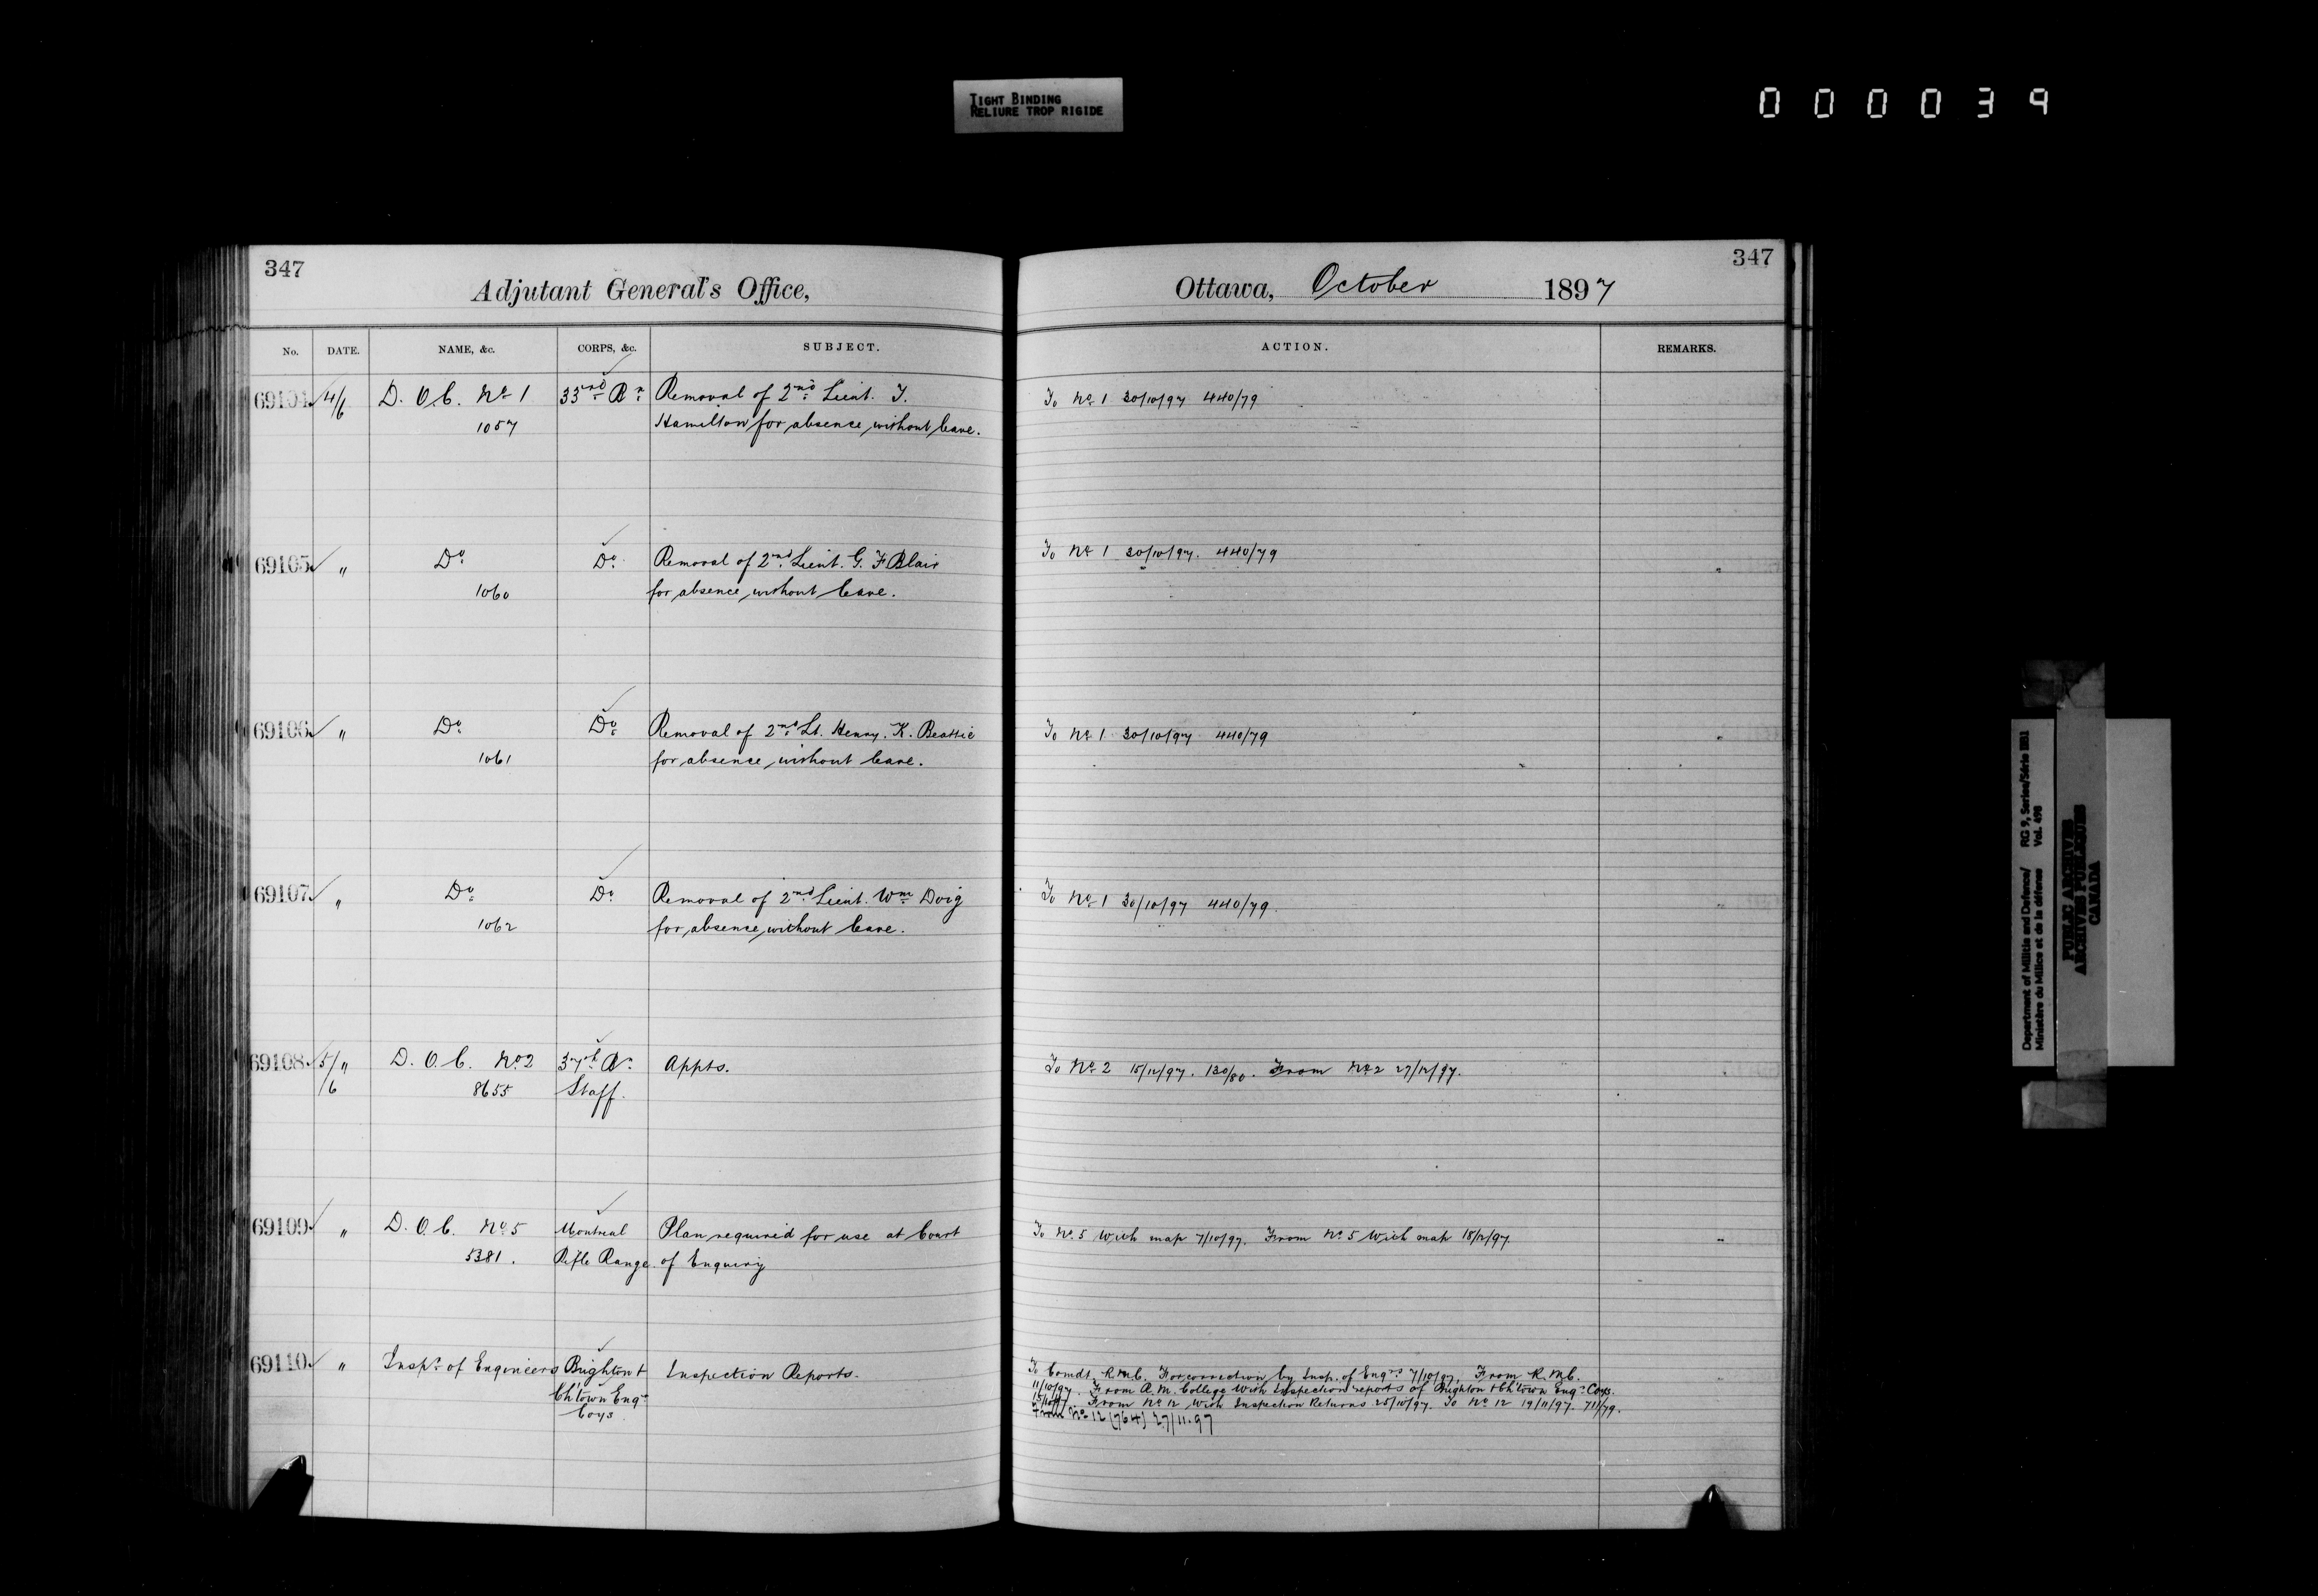 TIGHT BINDING
RELIURE TROP RIGIDE
000039
347
Adjutant General's Office,
No. DATE. NAME, &c. CORPS, &c. SUBJECT.
69104 4/6 D.O.C. No 1 33rd Bn Removal of 2nd Lieut. T.
1057 Hamilton for absence without leave.
69105 " Do Do Removal of 2nd Lieut. G. F Blair
1060 for absence without leave.
69106 " Do Do Removal of 2nd Lt. Henry. K. Beattie
1061 for absence without leave.
69107 " Do Do Removal of 2nd Lieut. Wm Doig
1062 for absence without leave.
69108 5/" D.O.C. No 2 37th Bn Appts.
/6 8655 Staff.
69109 " D.O.C. No 5 Montreal Plan required for use at Court
5381. Rifle Range of Enquiry
69110 " Inspr of Engineers Brighton + Inspection Reports.
Ch'town Engr
Coys
347
Ottawa, October 1897
ACTION. REMARKS.
To No 1 30/10/97 440/79
To No 1 30/10/97. 440/79
To No 1 30/10/97 440/79
To No 1 30/10/97 440/79
To No 2 15/12/97. 130/80. From No 2 27/12/97.
To No. 5 with map 7/10/97. From No 5 with map 18/12/97
To Comdt. R.M.C. For correction by Insp. of Engrs 7/10/97. From R.M.C.
11/10/97. From R.M. College with Inspection reports of Brighton + Ch'town Engr Coys.
15/10/97. From No 12 with Inspection Returns 25/10/97. To No 12 19/11/97. 711/79.
From No 12 (764) 27/11.97
Department of Militia and Defence/ RG 9, Series/Série IIB1
Ministère du Milice et de la défense Vol. 498
PUBLIC ARCHIVES
ARCHIVES PUBLIQUES
CANADA